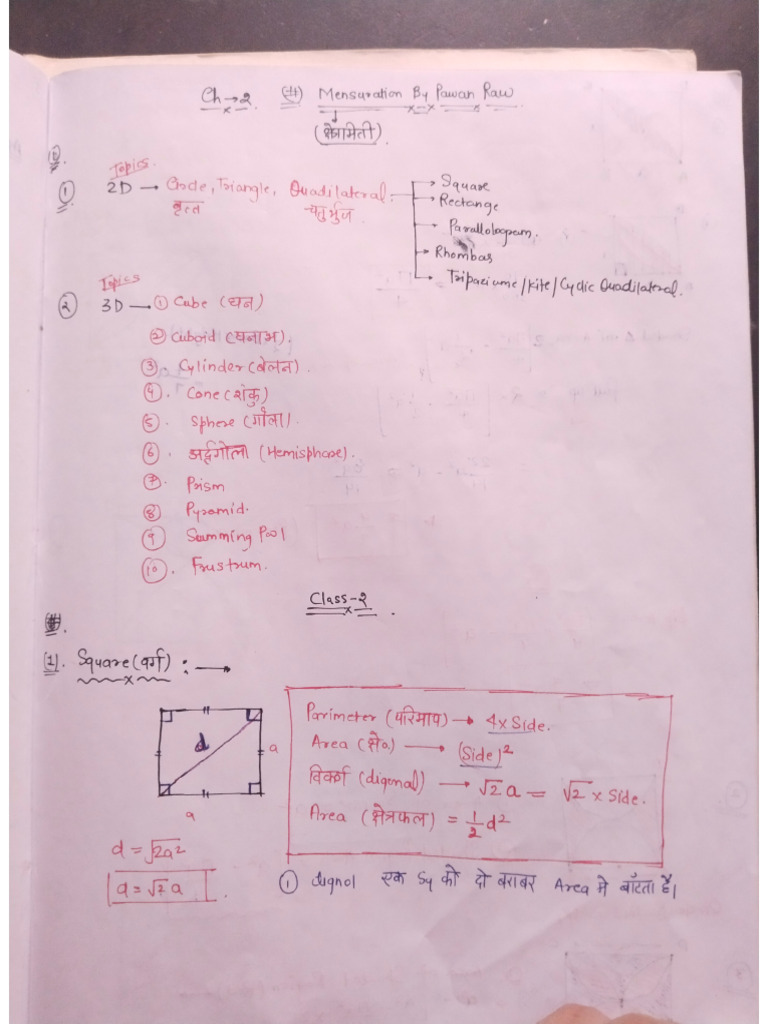 Ch→2. (#) Mensuration By Pawan Rav
(क्षेत्रामिती)
Topics.
① 2D → Circle, Triangle, Quadilateral.
वृत्त चतुर्भुज.
→ Square
→ Rectange
→ Parallologram.
→ Rhombas
→ Tripaziume/Kite/Cyclic Quadilateral.
Topics
② 3D → ① Cube (घन)
② Cuboid (घनाभ).
③ Cylinder (बेलन).
④. Cone (शंकु)
⑤. Sphere (गोला).
⑥. अर्द्धगोला (Hemisphare).
⑦. Prism
⑧ Pyramid.
⑨ Summing Pool
⑩. Frustrum.
Class-2.
#.
[1]. Square (वर्ग) : →
d
a
a
d = √2a²
a = √2 a.
Parimeter (परिमाप) → 4 x Side.
Area (क्षे०) → (Side)²
विकर्ण (digonal) → √2 a = √2 x Side.
Area (क्षेत्रफल) = 1/2 d²
① dignol एक Sq को दो बराबर Area मे बाँटता है।